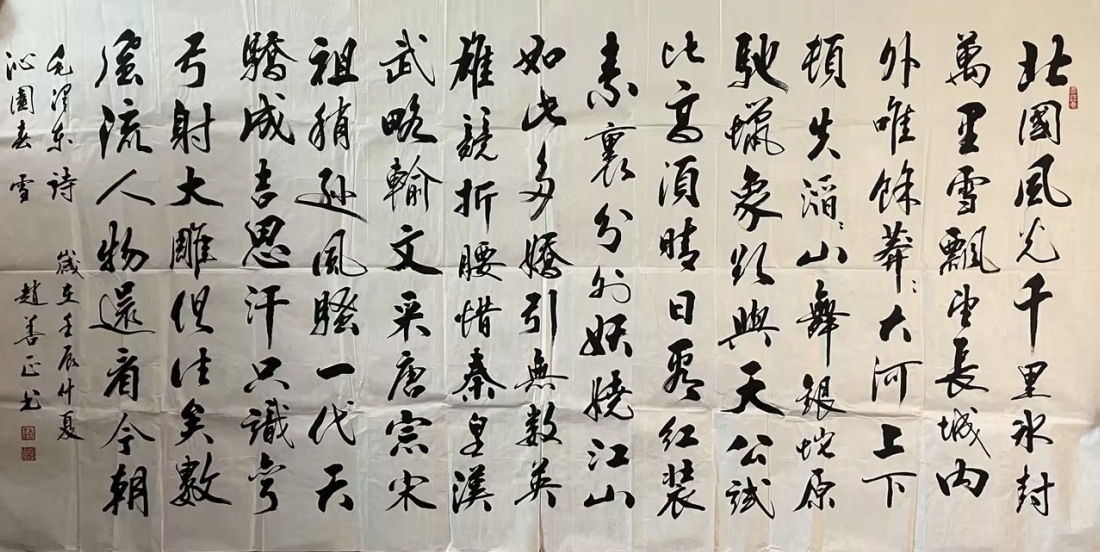 北國風光千里冰封
萬里雪飄望長城內
外唯餘莽〻大河上下
頓失滔〻山舞銀蛇原
馳蠟象欲與天公試
比高須晴日看紅裝
素裹分外妖嬈江山
如此多嬌引無數英
雄競折腰惜秦皇漢
武略輸文采唐宗宋
祖稍遜風騷一代天
驕成吉思汗只識彎
弓射大雕俱往矣數
風流人物還看今朝
毛澤東詩
沁園春雪
歲在壬辰仲夏
趙善正书